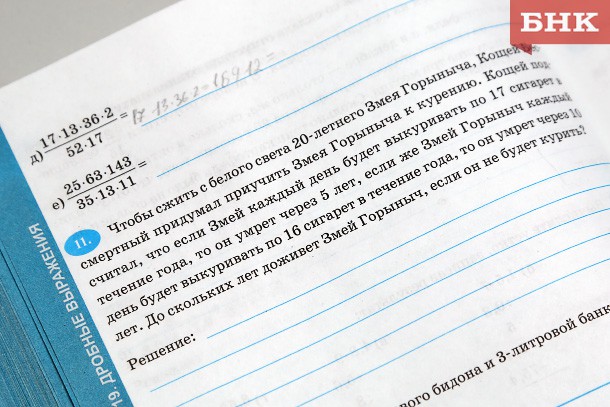 БНК
д) 17·13·36·2 / 52·17 = 17·13·36·2=
е) 25·63·143 / 35·13·11 =
11. Чтобы сжить с белого света 20-летнего Змея Горыныча, Кощей Бес-
смертный придумал приучить Змея Горыныча к курению. Кощей под-
считал, что если Змей каждый день будет выкуривать по 17 сигарет в
течение года, то он умрет через 5 лет, если же Змей Горыныч каждый
день будет выкуривать по 16 сигарет в течение года, то он умрет через 10
лет. До скольких лет доживет Змей Горыныч, если он не будет курить?
Решение:
вого бидона и 3-литровой банк
19. ДРОБНЫЕ ВЫРАЖЕНИЯ